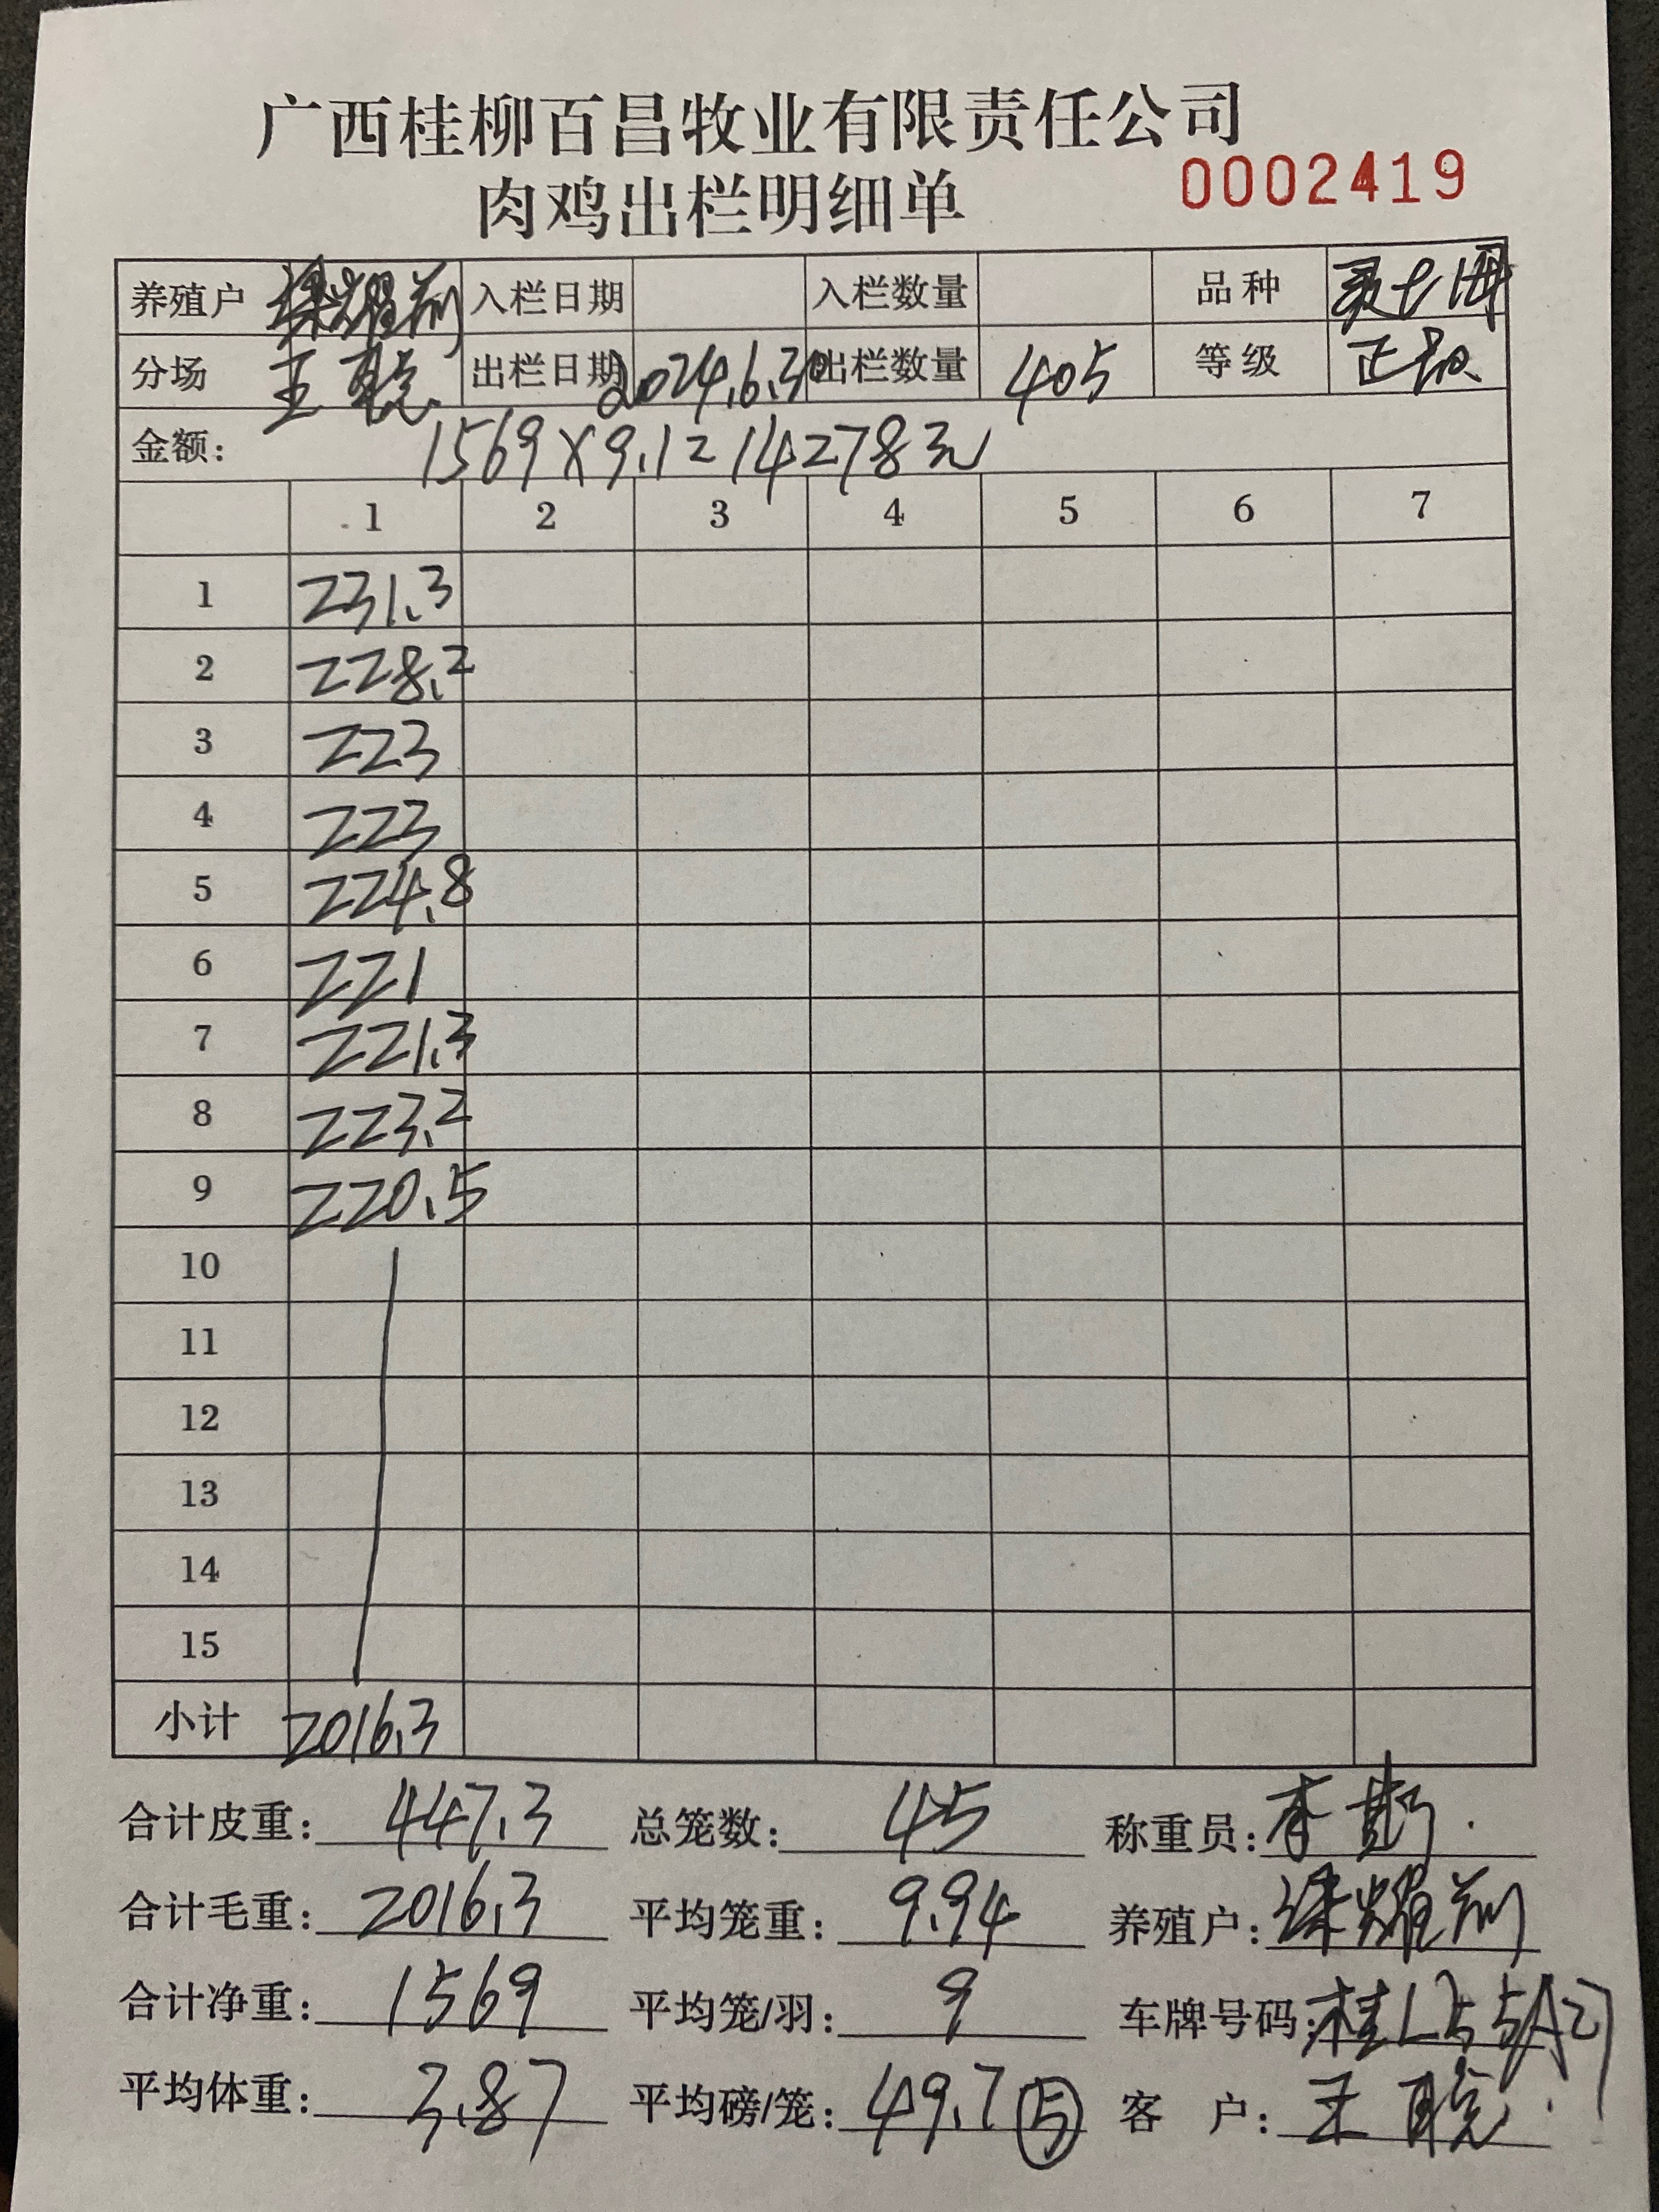 广西桂柳百昌牧业有限责任公司
肉鸡出栏明细单 0002419
养殖户 梁耀 入栏日期 入栏数量 品种
分场 王聪 出栏日期 2024.6.30 出栏数量 405 等级 正级
金额: 1569×9.1=14278元
1 2 3 4 5 6 7
1 231.3
2 228.2
3 223
4 223
5 224.8
6 221
7 221.3
8 223.2
9 220.5
10
11
12
13
14
15
小计 2016.3
合计皮重: 447.3 总笼数: 45 称重员: 李
合计毛重: 2016.3 平均笼重: 9.94 养殖户: 梁耀
合计净重: 1569 平均笼/羽: 9 车牌号码:
平均体重: 3.87 平均磅/笼: 49.7 ⑤ 客 户: 王聪